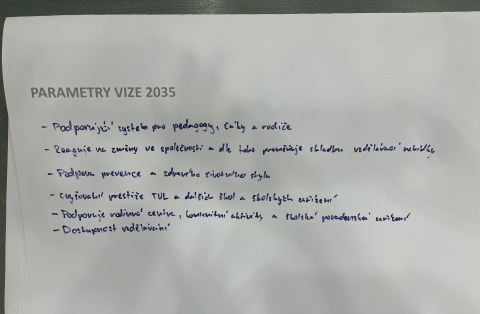 PARAMETRY VIZE 2035
- Podporující systém pro pedagogy, žáky a rodiče
- Reaguje na změny ve společnosti a dle toho proměňuje skladbu vzdělávací nabídky
- Podpora prevence a zdravého životního stylu
- zvyšování prestiže TUL a dalších škol a školských zařízení
- Podporuje rodinná centra, komunitní aktivity a školská poradenská zařízení
- Dostupnost vzdělávání